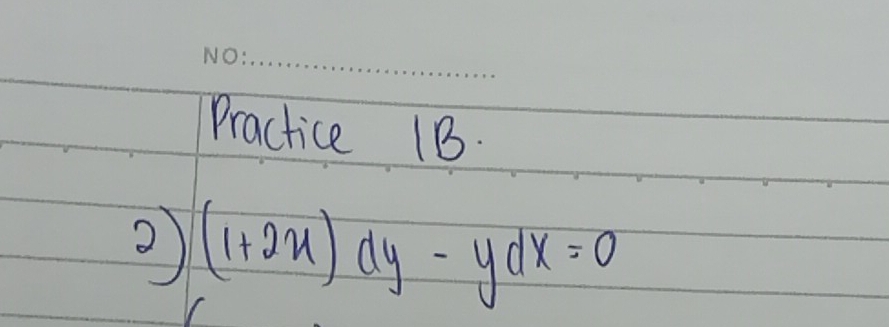 NO:............................
Practice 1B.
2) (1+2x) dy - ydx = 0